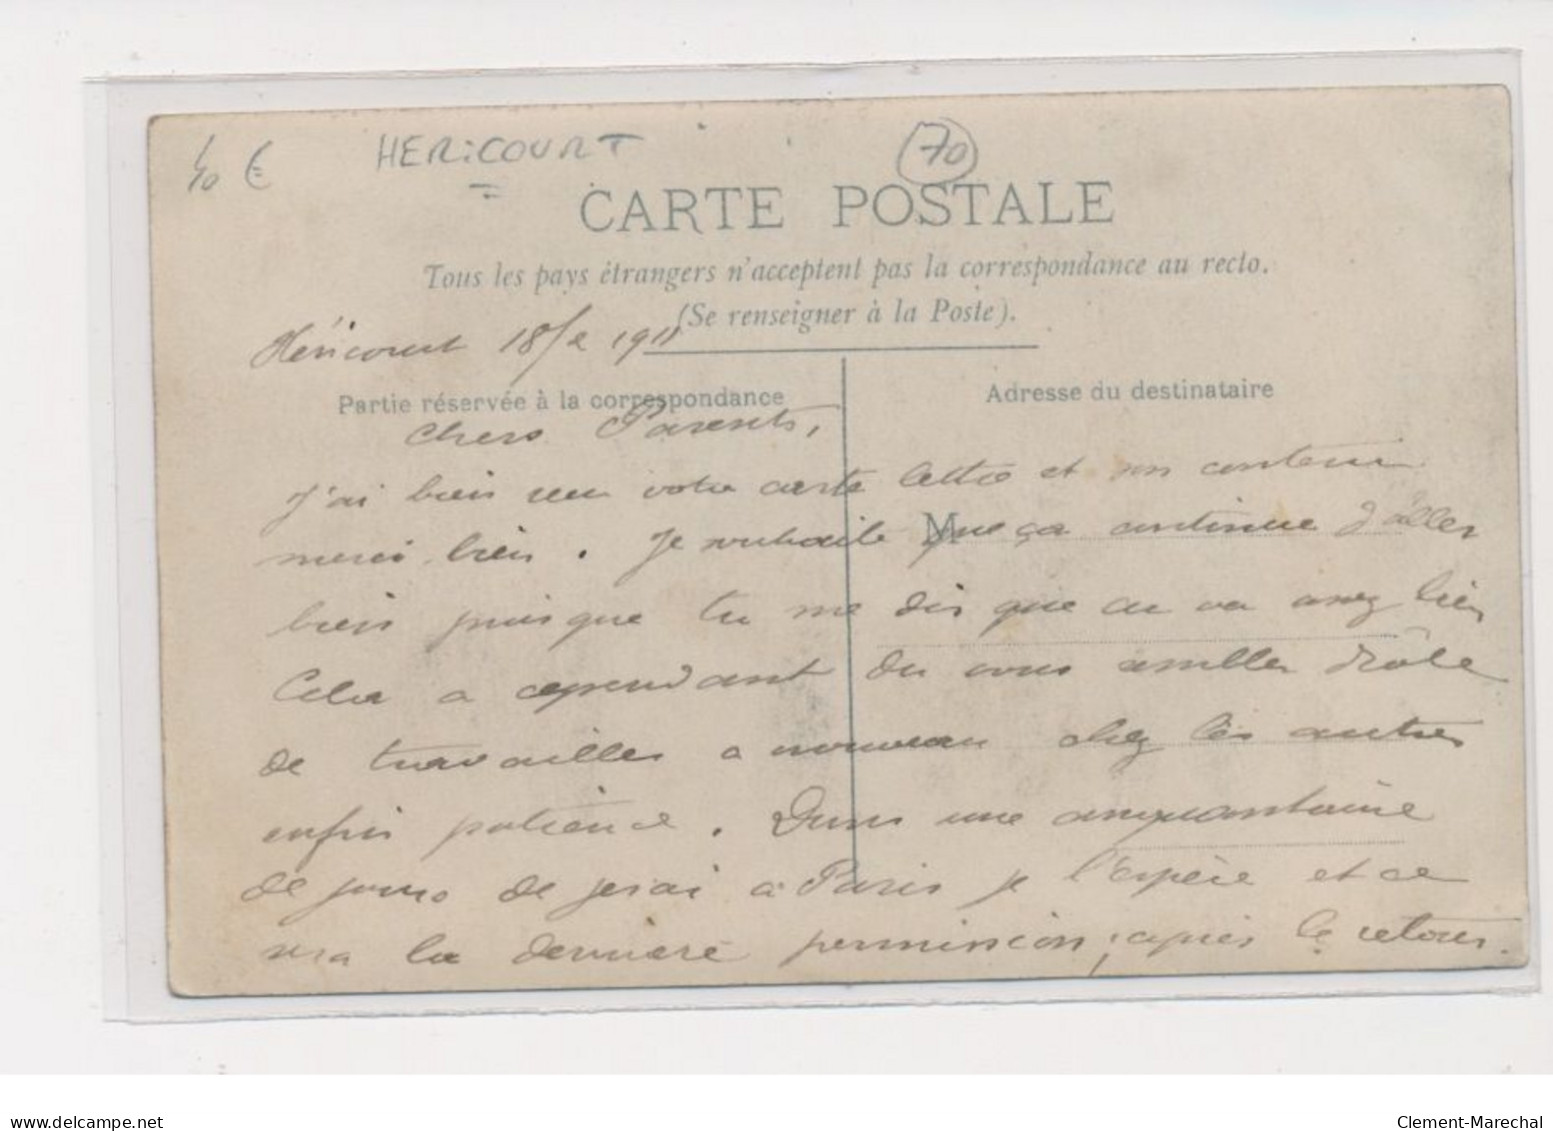 40 €
HERICOURT
70
CARTE POSTALE
Tous les pays étrangers n'acceptent pas la correspondance au recto.
(Se renseigner à la Poste).
Héricourt 18/2 1911
Partie réservée à la correspondance
Adresse du destinataire
Chers Parents,
J'ai bien reçu votre carte lettre et son contenu
M
merci bien. Je souhaite que ça continue d'aller
bien puisque tu me dis que ça va assez bien
Cela a cependant du vous sembler drôle
de travailler a nouveau chez les autres
enfin patience. Dans une cinquantaine
de jours de serai a Paris je l'espère et ce
sera la dernière permission, après le retour.
www.delcampe.net
Clement-Marechal